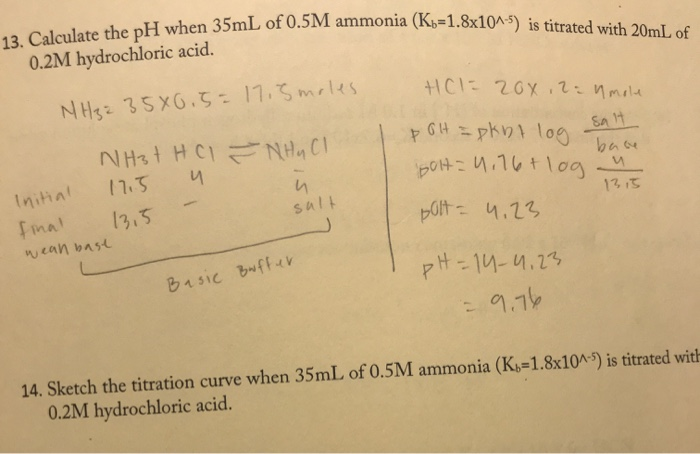 13. Calculate the pH when 35mL of 0.5M ammonia (Kb=1.8x10^-5) is titrated with 20mL of
0.2M hydrochloric acid.
NH3= 35x0.5= 17.5 moles
NH3 + HCl ⇌ NH4Cl
Initial 17.5 4 -
final 13.5 - 4
weak base salt
Basic Buffer
HCl= 20x.2= 4mole
pOH = pKb+ log salt/base
pOH= 4.76+log 4/13.5
pOH= 4.23
pH=14-4.23
= 9.76
14. Sketch the titration curve when 35mL of 0.5M ammonia (Kb=1.8x10^-5) is titrated with
0.2M hydrochloric acid.